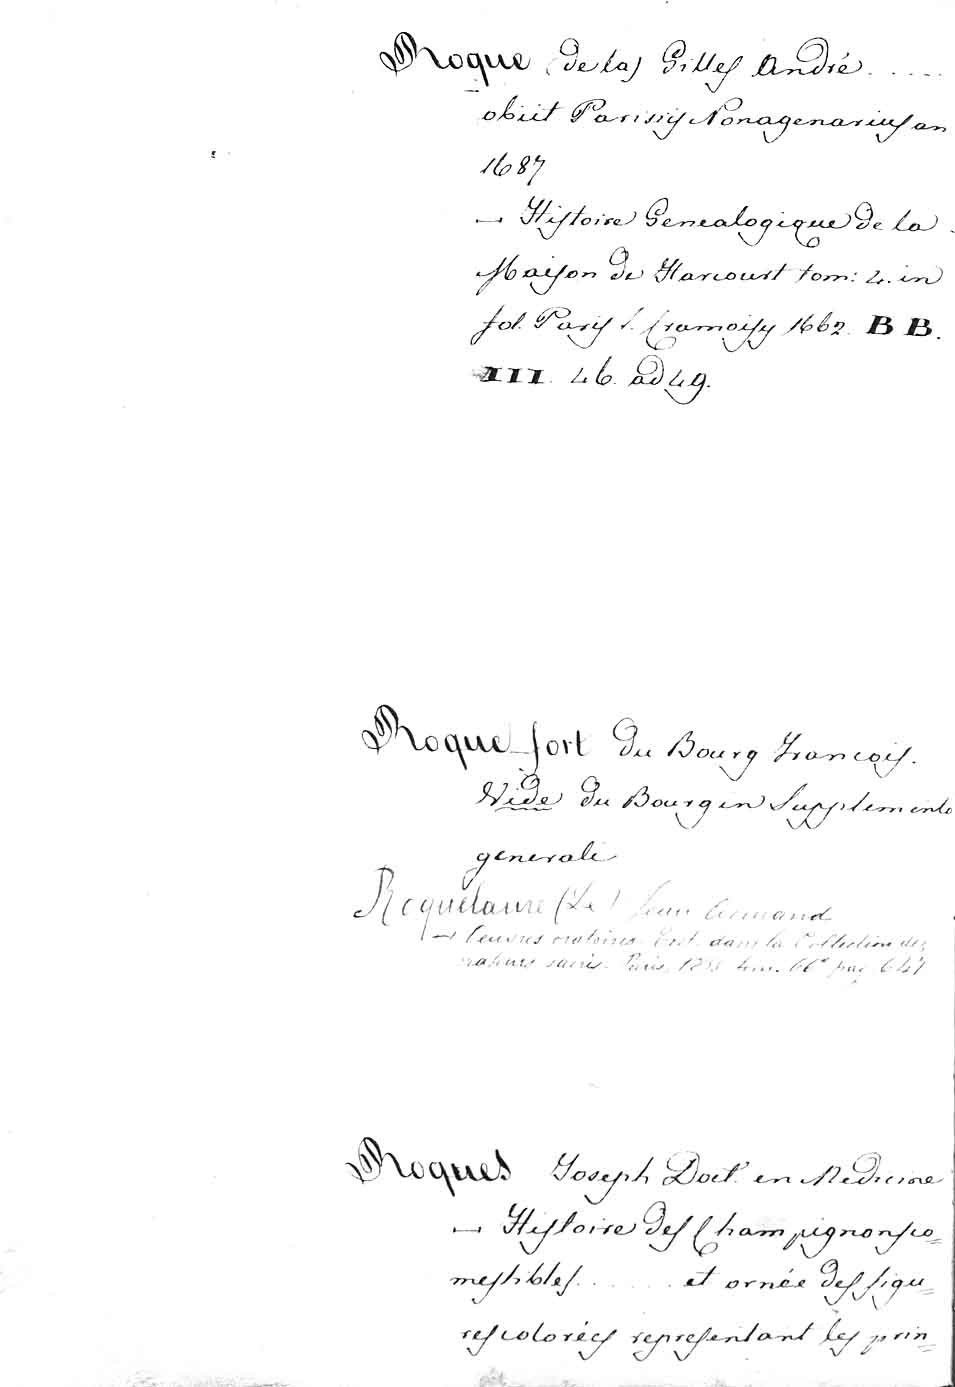 Roque (de la) Gilles André .....
obiit Parisiis Nonagenarius an
1687
— Histoire Genealogique de la
Maison de Harcourt tom: 4. in
fol. Paris S. Cramoisy 1662. BB.
III. 46. ad 49.
Roque-fort du Bourg François.
Vide du Bourg in Supplemento
generali
Roquelaure (De) Jean Armand
— Oeuvres oratoires. Exst. dans la Collection des
orateurs sacrés. Paris, tom. 66e pag. 641
Roques Joseph Doct. en Medicine
— Histoire des Champignons co=
mestibles....... et ornée des figu=
res colorées representant les prin=